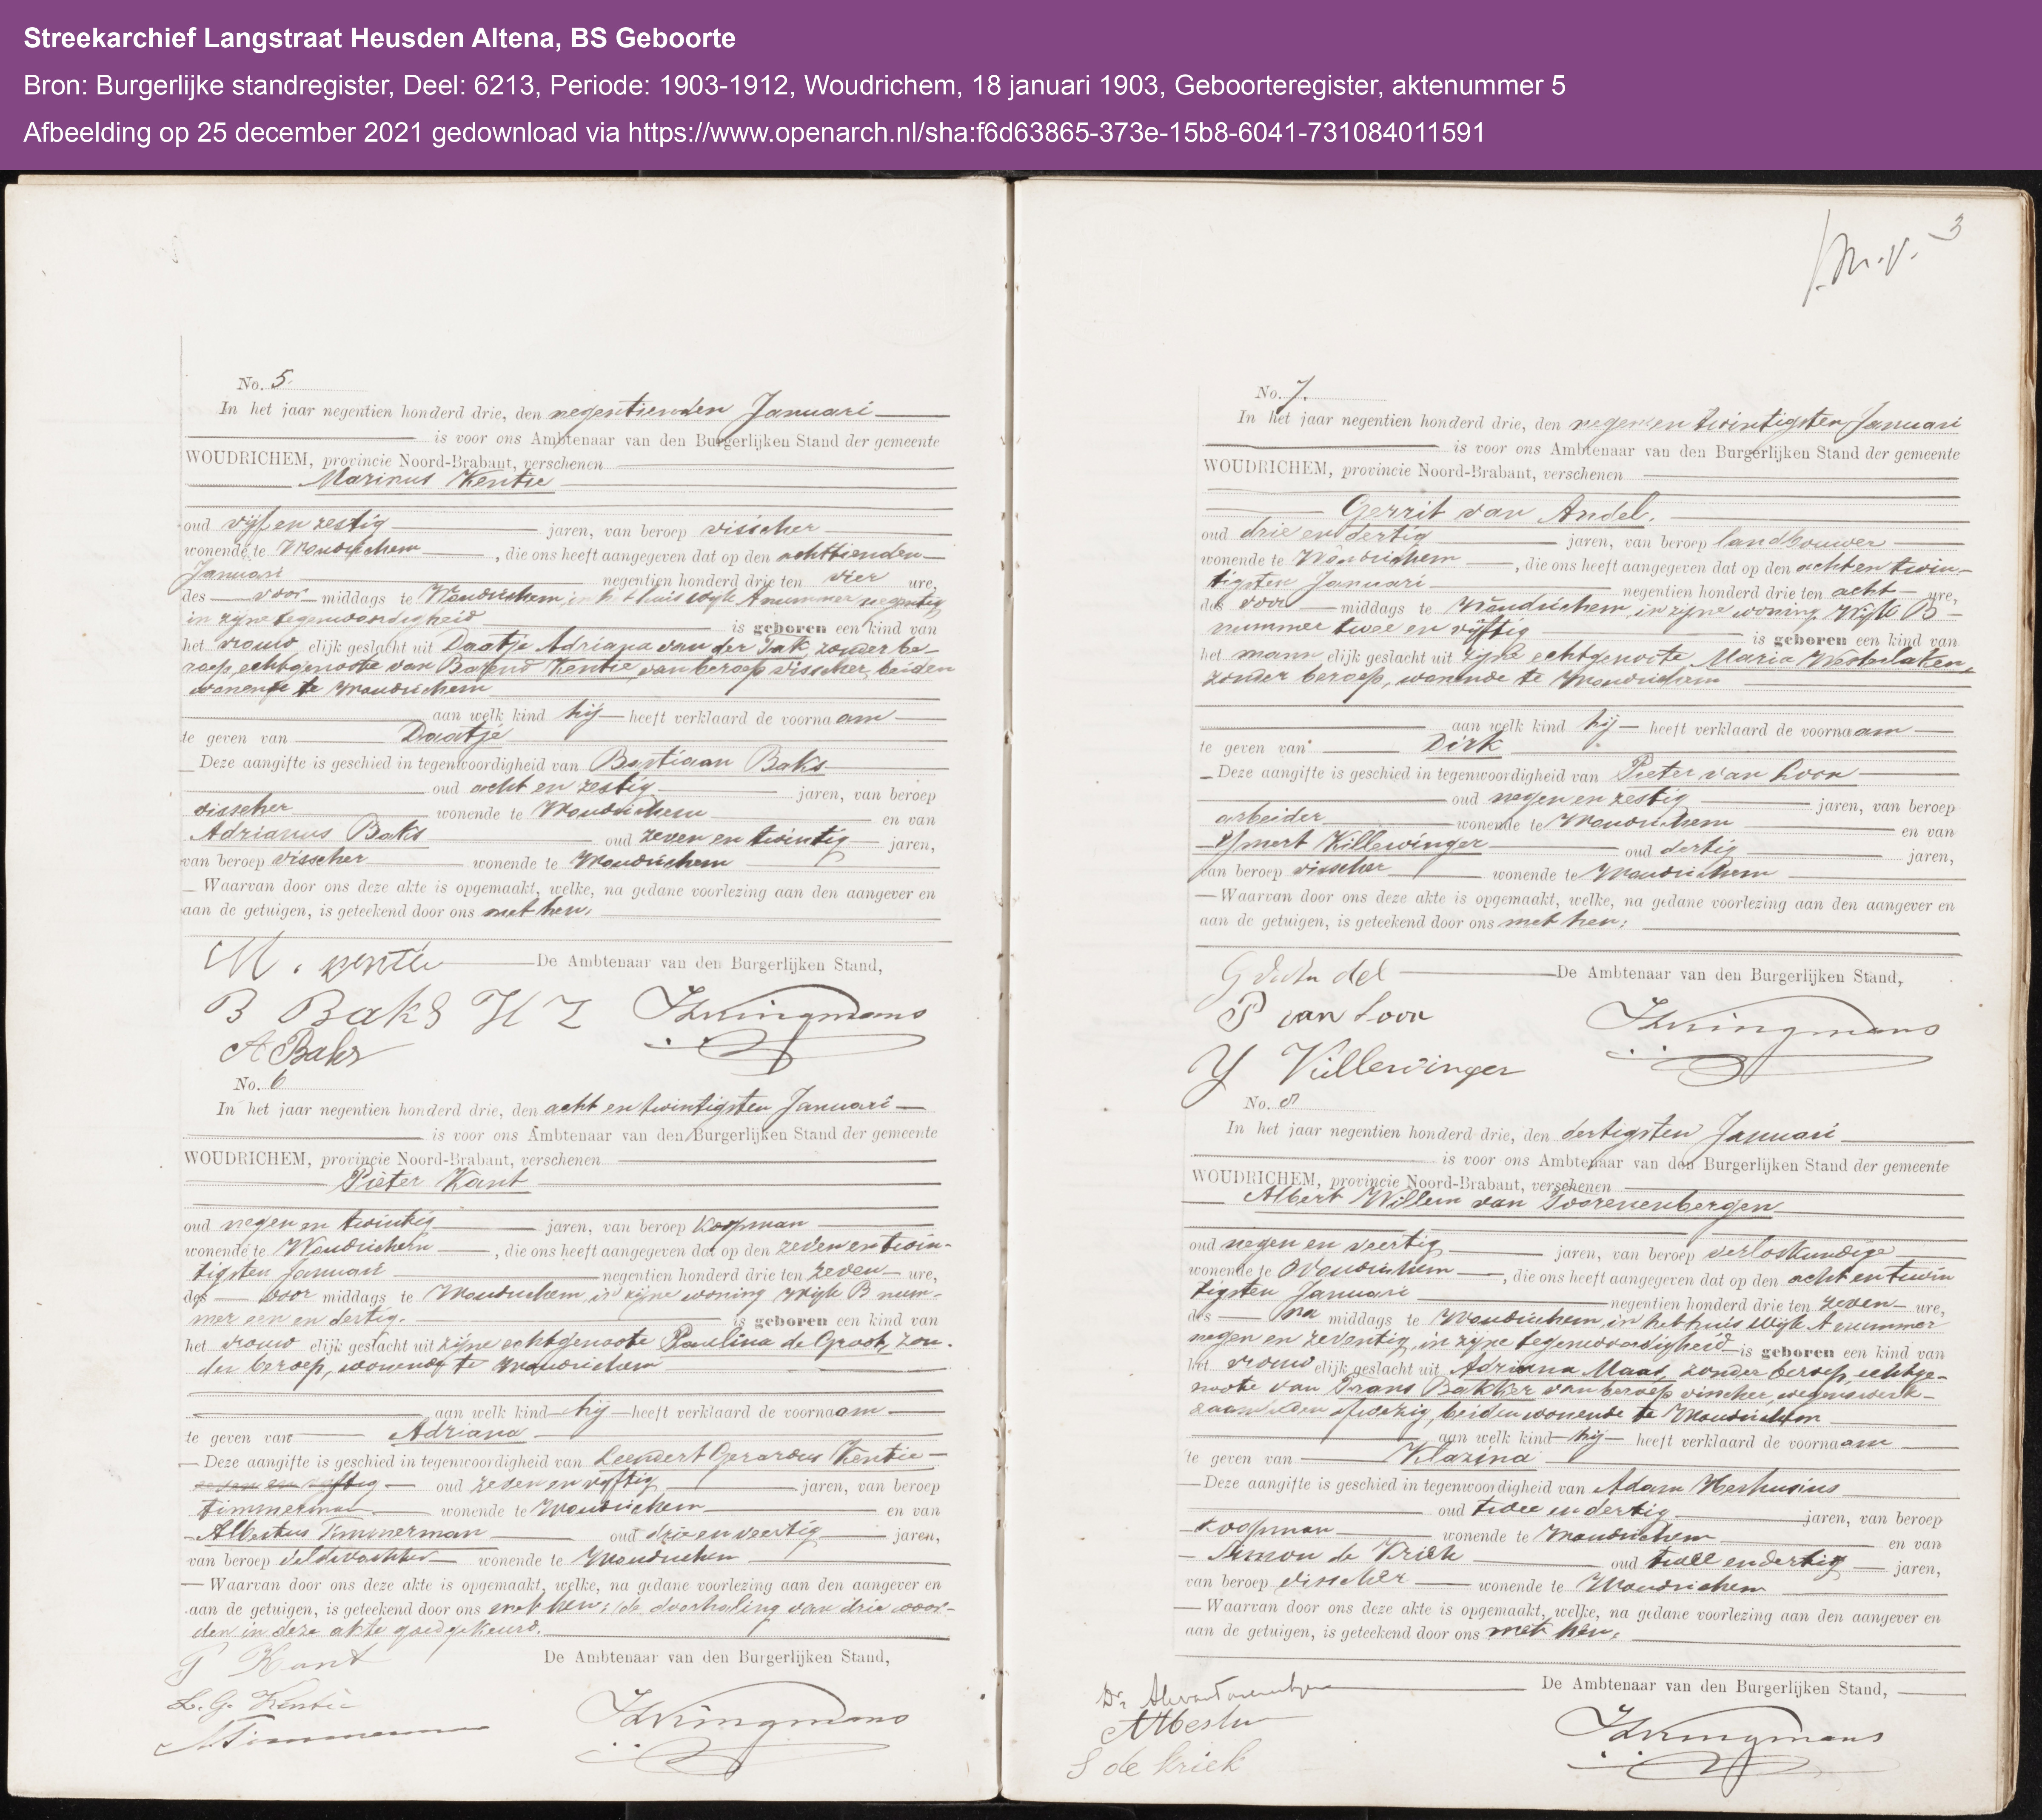 Streekarchief Langstraat Heusden Altena, BS Geboorte
Bron: Burgerlijke standregister, Deel: 6213, Periode: 1903-1912, Woudrichem, 18 januari 1903, Geboorteregister, aktenummer 5
Afbeelding op 25 december 2021 gedownload via https://www.openarch.nl/sha:f6d63865-373e-15b8-6041-731084011591
No. 5.
In het jaar negentien honderd drie, den negentienden Januari
is voor ons Ambtenaar van den Burgerlijken Stand der gemeente
WOUDRICHEM, provincie Noord-Brabant, verschenen
Marinus Kentie
oud vijf en zestig jaren, van beroep visscher
wonende te Woudrichem, die ons heeft aangegeven dat op den achttienden
Januari negentien honderd drie ten vier ure,
des voor middags te Woudrichem, in het huis wijk A nummer negentig
in zijne tegenwoordigheid is geboren een kind van
het vrouwelijk geslacht uit Daatje Adriana van der Pak, zonder be-
roep, echtgenoote van Barend Kentie van beroep visscher, beiden
wonende te Woudrichem
aan welk kind hij heeft verklaard de voornaam
te geven van Daatje
Deze aangifte is geschied in tegenwoordigheid van Bastiaan Baks
oud acht en zestig jaren, van beroep
visscher wonende te Woudrichem en van
Adrianus Baks oud zeven en twintig jaren,
van beroep visscher wonende te Woudrichem
Waarvan door ons deze akte is opgemaakt, welke, na gedane voorlezing aan den aangever en
aan de getuigen, is geteekend door ons met hen.
M. Kentie De Ambtenaar van den Burgerlijken Stand,
B Baks HZ
A Baks
No. 6
In het jaar negentien honderd drie, den acht en twintigsten Januari
is voor ons Ambtenaar van den Burgerlijken Stand der gemeente
WOUDRICHEM, provincie Noord-Brabant, verschenen
Pieter Kant
oud negen en twintig jaren, van beroep koopman
wonende te Woudrichem, die ons heeft aangegeven dat op den zeven en twin-
tigsten Januari negentien honderd drie ten zeven ure,
des voor middags te Woudrichem, in zijne woning Wijk B num-
mer een en dertig. is geboren een kind van
het vrouwelijk geslacht uit zijne echtgenoote Paulina de Groot, zon-
der beroep, wonende te Woudrichem
aan welk kind hij heeft verklaard de voornaam
te geven van Adriana
Deze aangifte is geschied in tegenwoordigheid van Leendert Gerardus Kentie
oud zeven en vyftig jaren, van beroep
timmerman wonende te Woudrichem en van
Albertus Timmerman oud drie en veertig jaren,
van beroep veldwachter wonende te Woudrichem
Waarvan door ons deze akte is opgemaakt, welke, na gedane voorlezing aan den aangever en
aan de getuigen, is geteekend door ons met hen; de doorhaling van drie woor-
den in deze akte goedgekeurd.
P Kant De Ambtenaar van den Burgerlijken Stand,
L. G. Kentie
A Timmerman
3
No. 7.
In het jaar negentien honderd drie, den negen en twintigsten Januari
is voor ons Ambtenaar van den Burgerlijken Stand der gemeente
WOUDRICHEM, provincie Noord-Brabant, verschenen
Gerrit van Andel.
oud drie en dertig jaren, van beroep landbouwer
wonende te Woudrichem, die ons heeft aangegeven dat op den acht en twin-
tigsten Januari negentien honderd drie ten acht ure,
des voor middags te Woudrichem, in zijne woning Wijk B
nummer twee en vijftig is geboren een kind van
het mannelijk geslacht uit zijne echtgenoote, Maria Westerlaken,
zonder beroep, wonende te Woudrichem
aan welk kind hij heeft verklaard de voornaam
te geven van Dirk
Deze aangifte is geschied in tegenwoordigheid van Pieter van Loon
oud negen en zestig jaren, van beroep
arbeider wonende te Woudrichem en van
Ysmert Killewinger oud dertig jaren,
van beroep visscher wonende te Woudrichem
Waarvan door ons deze akte is opgemaakt, welke, na gedane voorlezing aan den aangever en
aan de getuigen, is geteekend door ons met hen.
De Ambtenaar van den Burgerlijken Stand,
P van Loon
Y Killewinger
No. 8
In het jaar negentien honderd drie, den dertigsten Januari
is voor ons Ambtenaar van den Burgerlijken Stand der gemeente
WOUDRICHEM, provincie Noord-Brabant, verschenen
Albert Willem van Toorenenbergen
oud negen en veertig jaren, van beroep verloskundige
wonende te Woudrichem, die ons heeft aangegeven dat op den acht en twin
tigsten Januari negentien honderd drie ten zeven ure,
des na middags te Woudrichem, in het huis wijk A nummer
negen en zeventig, in zijne tegenwoordigheid is geboren een kind van
het vrouwelijk geslacht uit Adriana Maas, zonder beroep, echtge-
noote van Frans Bakker van beroep visscher, wegens werk-
zaamheden afwezig, beiden wonende te Woudrichem
aan welk kind hij heeft verklaard de voornaam
te geven van Klazina
Deze aangifte is geschied in tegenwoordigheid van Adam
oud twee en dertig jaren, van beroep
koopman wonende te Woudrichem en van
Simon de Kriek oud twee en dertig jaren,
van beroep visscher wonende te Woudrichem
Waarvan door ons deze akte is opgemaakt, welke, na gedane voorlezing aan den aangever en
aan de getuigen, is geteekend door ons met hen.
De Ambtenaar van den Burgerlijken Stand,
S de Kriek